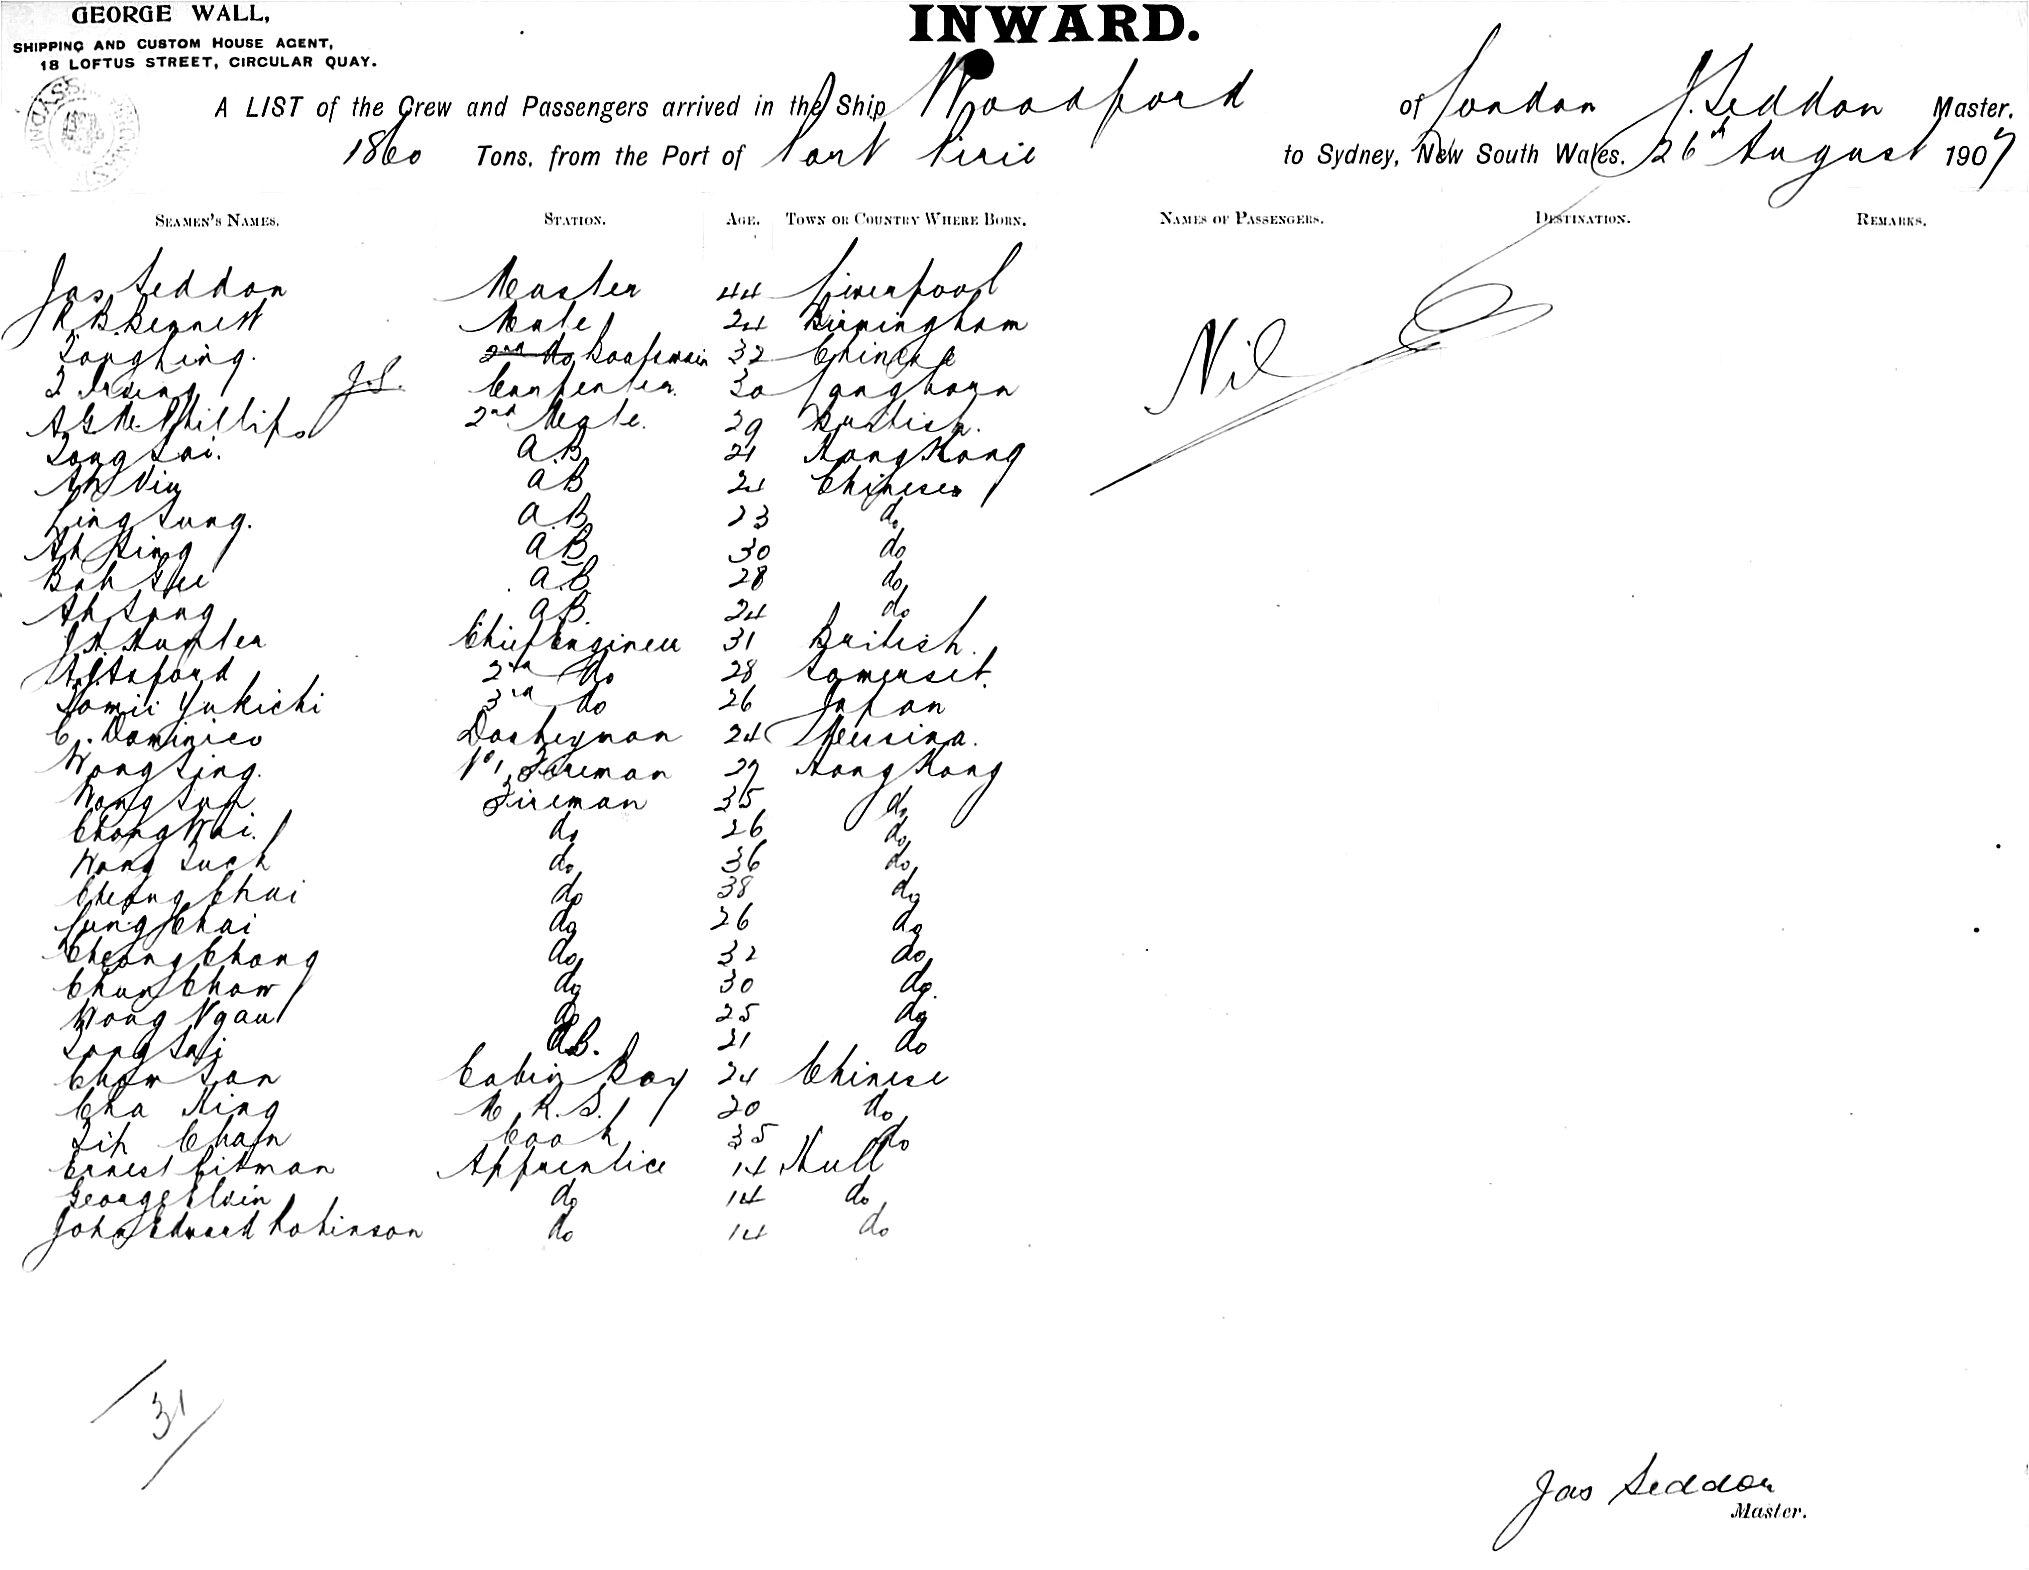 GEORGE WALL,
SHIPPING AND CUSTOM HOUSE AGENT,
18 LOFTUS STREET, CIRCULAR QUAY.
INWARD.
A LIST of the Crew and Passengers arrived in the Ship Woodford of London J. Seddon Master.
1860 Tons, from the Port of Port Pirie to Sydney, New South Wales. 26th August 1907
SEAMEN'S NAMES. STATION. AGE. TOWN OR COUNTRY WHERE BORN. NAMES OF PASSENGERS. DESTINATION. REMARKS.
Jas Seddon Master 44 Liverpool
R. B. Bennett Mate 24 Birmingham
Tong hing. 2nd do Boatswain 32 Chinese
J.S. Carpenter. 30 Langhorn
A G M. Phillips 2nd Mate. 29 British.
Tong Sai. A.B 21 Hong Kong
Ah AB 24 Chinese
Ling Sung. A.B 23 do
Ah AB 30 do
Bah Gee A.B 28 do
Ah Song AB. 24 do
Chief Engineer 31 British.
2nd do 28 Somerset.
Tomii Yukichi 3rd do 26 Japan
C. Dominico Donkeyman 24 Messina.
Wong Sing. No 1 Fireman 29 Hong Kong
Wong Fireman 35 do
Chong Wai. do 26 do
Wong Such do 36 do
Cheong Chai do 38 do
Lung Chai do 26 do
Cheong Chong do 32 do
Chun Chow do 30 do
Wong Ngau do 25 do
Tong Sai A.B. 21 do
Chow San Cabin Boy 24 Chinese
Cha Hing M. R. S. 20 do
Chan Cook 35 do
Ernest Pitman Apprentice 14 Hull
George Elvin do 14 do
John Edward Robinson do 14 do
Nil
31
Jas Seddon
Master.